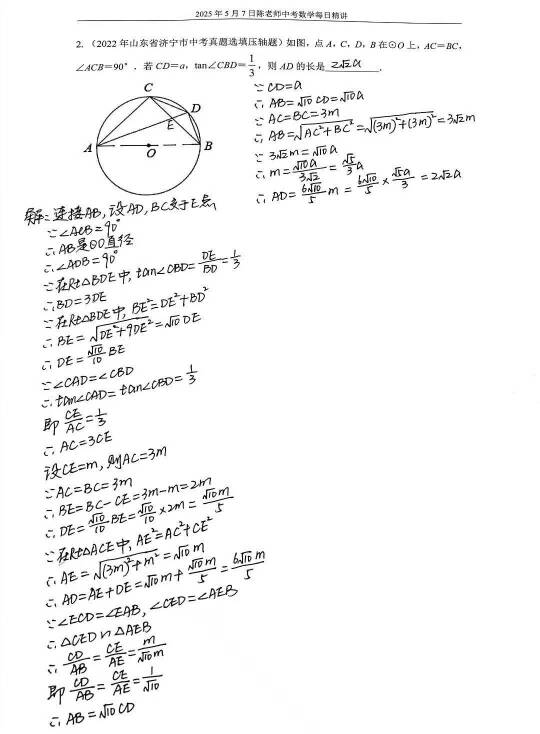 2025年5月7日陈老师中考数学每日精讲
2. (2022年山东省济宁市中考真题选填压轴题) 如图,点A,C,D,B在⊙O上,AC=BC,
∠ACB=90°. 若CD=a, tan∠CBD=1/3, 则AD的长是 2√2a .
C
D
E
A
O
B
解:连接AB,设AD,BC交于E点
∵∠ACB=90°
∴AB是⊙O直径
∴∠ADB=90°
∵在Rt△BDE中, tan∠CBD=DE/BD=1/3
∴BD=3DE
∵在Rt△BDE中, BE²=DE²+BD²
∴BE=√(DE²+9DE²)=√10DE
∴DE=√10/10 BE
∵∠CAD=∠CBD
∴tan∠CAD=tan∠CBD=1/3
即 CE/AC=1/3
∴AC=3CE
设CE=m, 则AC=3m
∵AC=BC=3m
∴BE=BC-CE=3m-m=2m
∴DE=√10/10 BE=√10/10×2m=√10m/5
∵在Rt△ACE中, AE²=AC²+CE²
∴AE=√((3m)²+m²)=√10m
∴AD=AE+DE=√10m+√10m/5=6√10m/5
∵∠ECD=∠EAB, ∠CED=∠AEB
∴△CED∽△AEB
∴CD/AB=CE/AE=m/√10m
即 CD/AB=CE/AE=1/√10
∴AB=√10CD
∵CD=a
∴AB=√10CD=√10a
∵AC=BC=3m
∴AB=√(AC²+BC²)=√((3m)²+(3m)²)=3√2m
∵3√2m=√10a
∴m=√10a/3√2=√5/3 a
∴AD=6√10/5 m=6√10/5×√5a/3=2√2a